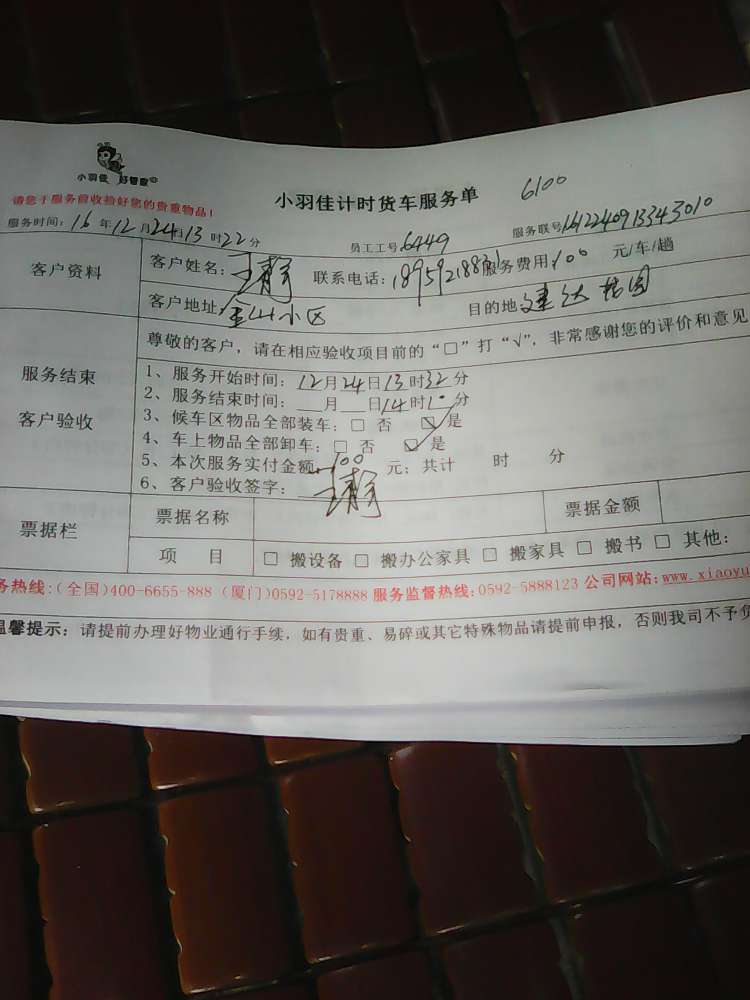 小羽佳 好管家®
请您于服务前收拾好您的贵重物品!
小羽佳计时货车服务单 6100
服务时间: 16年12月24日13时22分 员工工号6449 服务联号1612240913343010
客户资料 客户姓名: 王静 联系电话: 服务费用:100 元/车/趟
客户地址 金山小区 目的地 建达花园
尊敬的客户，请在相应验收项目前的“□”打“√”，非常感谢您的评价和意见
服务结束
客户验收
1、服务开始时间: 12月24日13时32分
2、服务结束时间: __月__日14时10分
3、候车区物品全部装车: □ 否 ☑ 是
4、车上物品全部卸车: □ 否 ☑ 是
5、本次服务实付金额 100 元: 共计 时 分
6、客户验收签字: 王静
票据栏 票据名称 票据金额
项 目 □ 搬设备 □ 搬办公家具 □ 搬家具 □ 搬书 □ 其他:
务热线:(全国)400-6655-888 (厦门)0592-5178888 服务监督热线:0592-5888123 公司网站:www.xiaoyu
温馨提示: 请提前办理好物业通行手续，如有贵重、易碎或其它特殊物品请提前申报，否则我司不予负